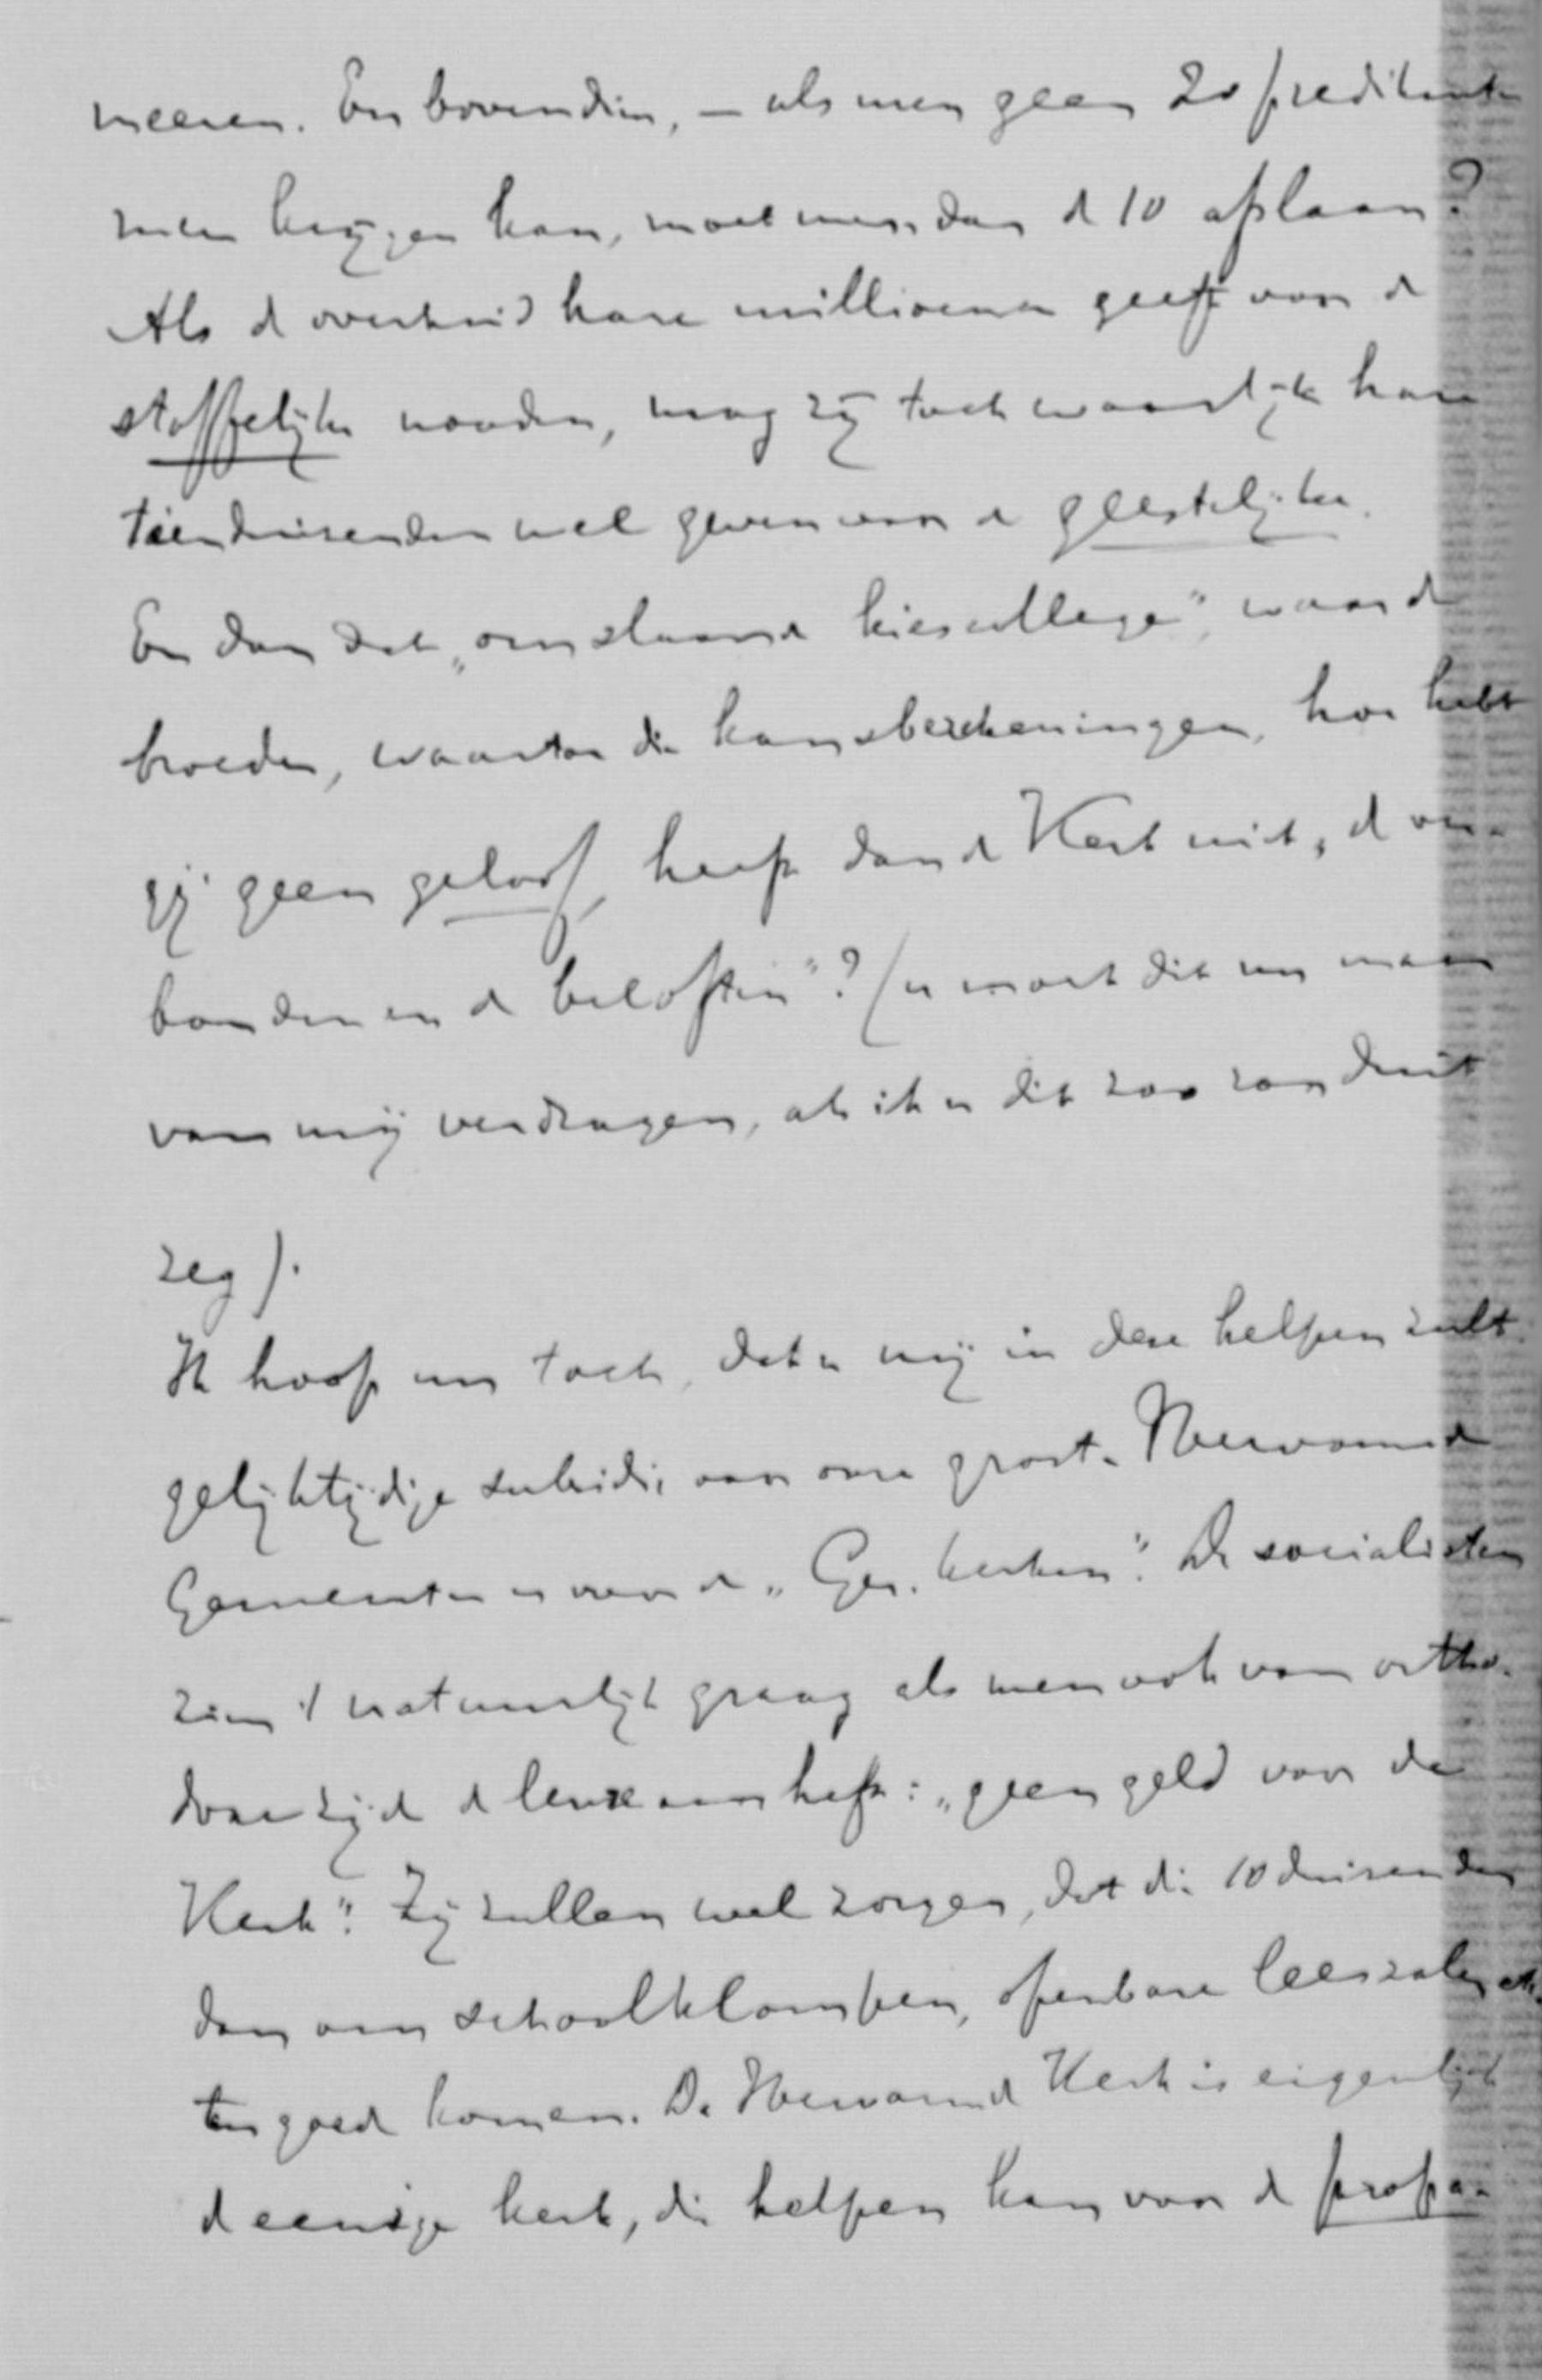 meeren. En bovendien, — als men geen 20 predikanten
meer krijgen kan, moet men dan de 10 afslaan?
Als de overheid hare millioenen geeft voor de
stoffelijke nooden, mag zij toch waarlijk hare
tienduizenden wel geven voor de geestelijke.
En dan dat „omslaand kiescollege”, waarde
broeder, waartoe die kansberekeningen, hoe hebt
gij geen geloof, heeft dan de Kerk niet „de ver-
bonden en de beloften”? (u moet dit nu maar
van mij verdragen, als ik u dit zoo ronduit
zeg).
Ik hoop nu toch, dat u mij in deze helpen zult.
gelijktijdige subsidie aan onze groote Hervormde
Gemeenten en voor de „Ger. kerken”. De socialisten
zien 't natuurlijk graag als men ook van ortho-
doxe zijde de leuze aanheft: „geen geld voor de
Kerk”. Zij zullen wel zorgen, dat die 10duizenden
dan aan schoolklompen, openbare leeszalen etc.
ten goede komen. De Hervormde Kerk is eigenlijk
de eenige kerk, die helpen kan voor de propa-